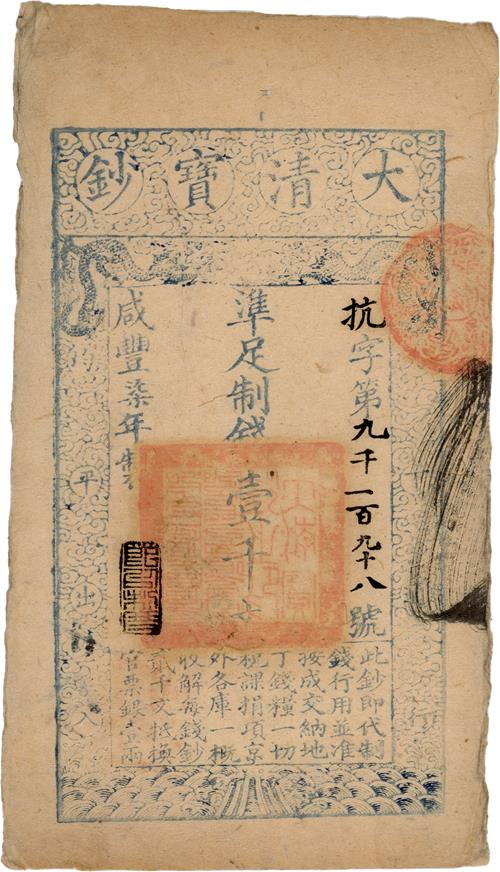 大清寶鈔
抗字第九千一百九十八號
準足制錢壹千文
咸豐柒年製
此鈔即代制
錢行用並准
按成交納地
丁錢糧一切
稅課捐項京
外各庫一概
收解每錢鈔
貳千文抵換
官票銀壹兩
平
出
入
行